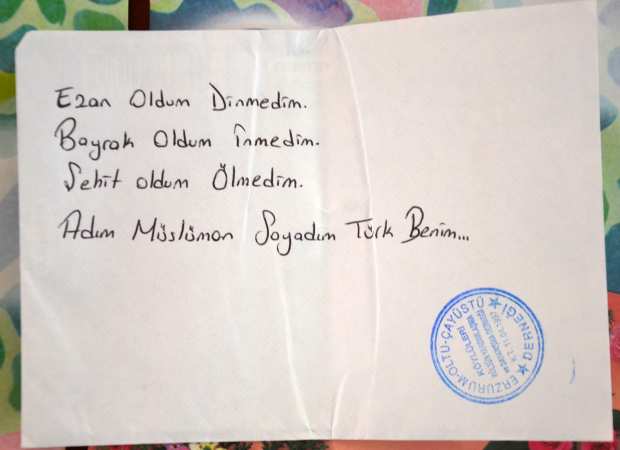 Ezan Oldum Dinmedim.
Bayrak Oldum İnmedim.
Şehit oldum Ölmedim.
Adım Müslüman Soyadım Türk Benim...
ERZURUM-OLTU-ÇAYÜSTÜ
KÖYLÜLERİ
DERNEĞİ